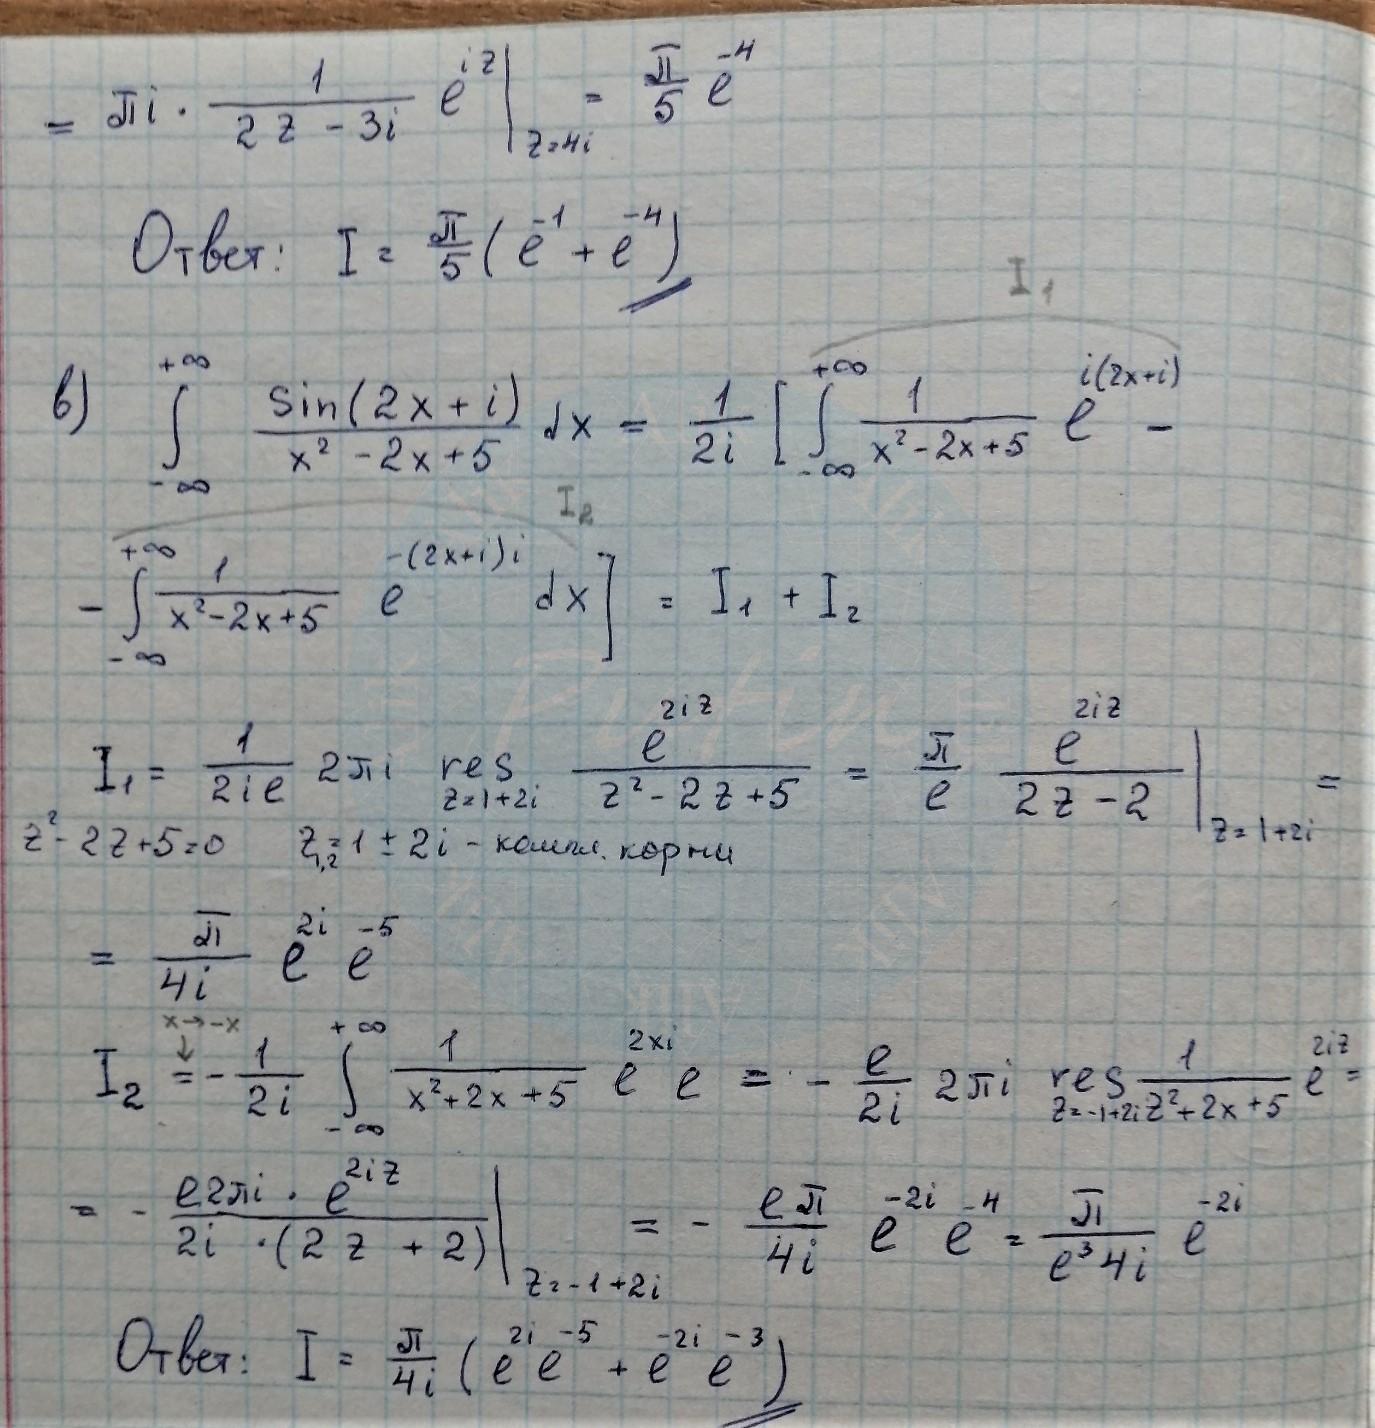 = πi · 1/(2z - 3i) e^{iz} |_{z=4i} = π/5 e^{-4}
Ответ: I = π/5 (e^{-1} + e^{-4})
I₁
в) ∫_{-∞}^{+∞} sin(2x + i)/(x² - 2x + 5) dx = 1/2i [ ∫_{-∞}^{+∞} 1/(x² - 2x + 5) e^{i(2x+i)} -
I₂
- ∫_{-∞}^{+∞} 1/(x² - 2x + 5) e^{-(2x+i)i} dx ] = I₁ + I₂
I₁ = 1/(2ie) 2πi res_{z=1+2i} e^{2iz}/(z² - 2z + 5) = π/e e^{2iz}/(2z - 2) |_{z=1+2i} =
z² - 2z + 5 = 0 z_{1,2} = 1 ± 2i - компл. корни
= π/4i e^{2i} e^{-5}
x → -x
↓
I₂ = - 1/2i ∫_{-∞}^{+∞} 1/(x² + 2x + 5) e^{2xi} e = - e/2i 2πi res_{z=-1+2i} 1/(z² + 2x + 5) e^{2iz} =
= - (e2πi · e^{2iz})/(2i · (2z + 2)) |_{z=-1+2i} = - eπ/4i e^{-2i} e^{-4} = π/(e³4i) e^{-2i}
Ответ: I = π/4i (e^{2i} e^{-5} + e^{-2i} e^{-3})